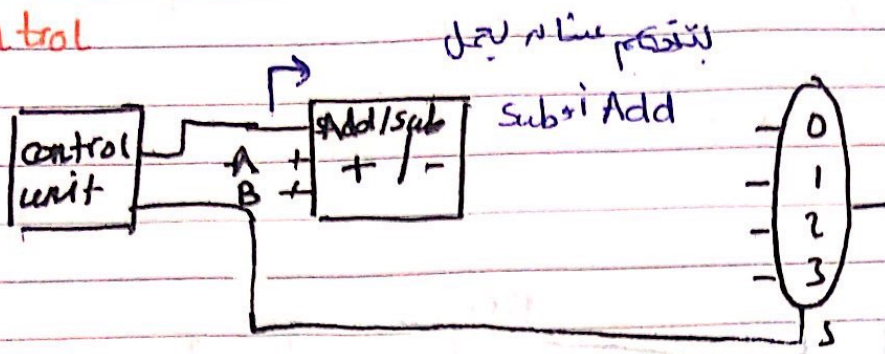 trol
بتتحكم عشان يعمل
Sub أو Add
control
unit
Add/sub
A +
B +
+ / -
0
1
2
3
S